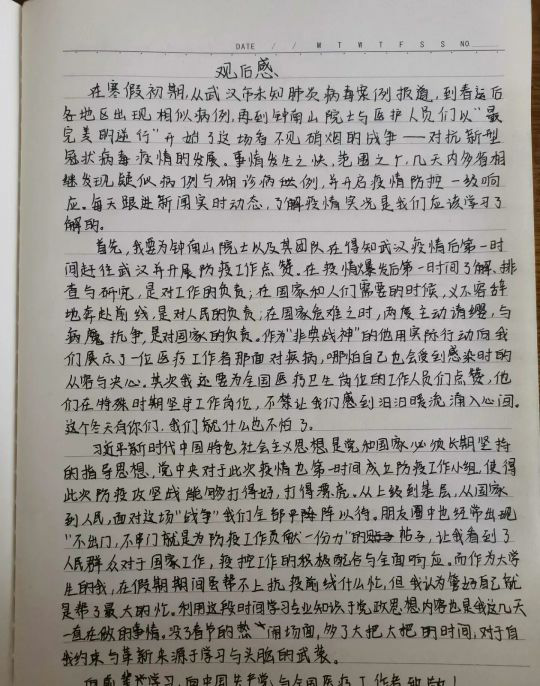 DATE / / M T W T F S S NO.
观后感
在寒假初期,从武汉市未知肺炎病毒案例报道,到春运后
各地区出现相似病例,再到钟南山院士与医护人员们以“最
完美的逆行”开始了这场看不见硝烟的战争——对抗新型
冠状病毒疫情的发展。事情发生之快,范围之广,几天内多省相
继发现疑似病例与确诊病例,并开启疫情防控一级响
应。每天跟进新闻实时动态,了解疫情实况是我们应该学习了
解的。
首先,我要为钟南山院士以及其团队在得知武汉疫情后第一时
间赶往武汉并开展防疫工作点赞。在疫情爆发后第一时间了解、排
查与研究,是对工作的负责;在国家和人们需要的时候,义不容辞
地奔赴前线,是对人民的负责;在国家危难之时,两度主动请缨,与
病魔抗争,是对国家的负责。作为“非典战神”的他用实际行动向我
们展示了一位医疗工作者那面对疾病,哪怕自己也会受到感染时的
从容与决心。其次我还要为全国医疗卫生岗位的工作人员们点赞,他
们在特殊时期坚守工作岗位,不禁让我们感到汩汩暖流涌入心间。
这个冬天有你们,我们就什么也不怕了。
习近平新时代中国特色社会主义思想是党和国家必须长期坚持
的指导思想,党中央对于此次疫情也第一时间成立防疫工作小组,使得
此次防疫攻坚战能够打得好,打得漂亮。从上级到基层,从国家
到人民,面对这场“战争”我们全部严阵以待。朋友圈中也经常出现
“不出门,不串门就是为防疫工作贡献一份力”的帖子,让我看到了
人民群众对于国家工作,疫控工作的积极配合与全面响应。而作为大学
生的我,在假期期间虽帮不上抗疫前线什么忙,但我认为管好自己就
是帮了最大的忙。利用这段时间学习专业知识于党政思想内容也是我这几天
一直在做的事情。没了春节的热闹场面,多了大把大把的时间,对于自
我约束与革新来源于学习与头脑的武装。
学习,向中国共产党、与全国医疗工作者致敬!